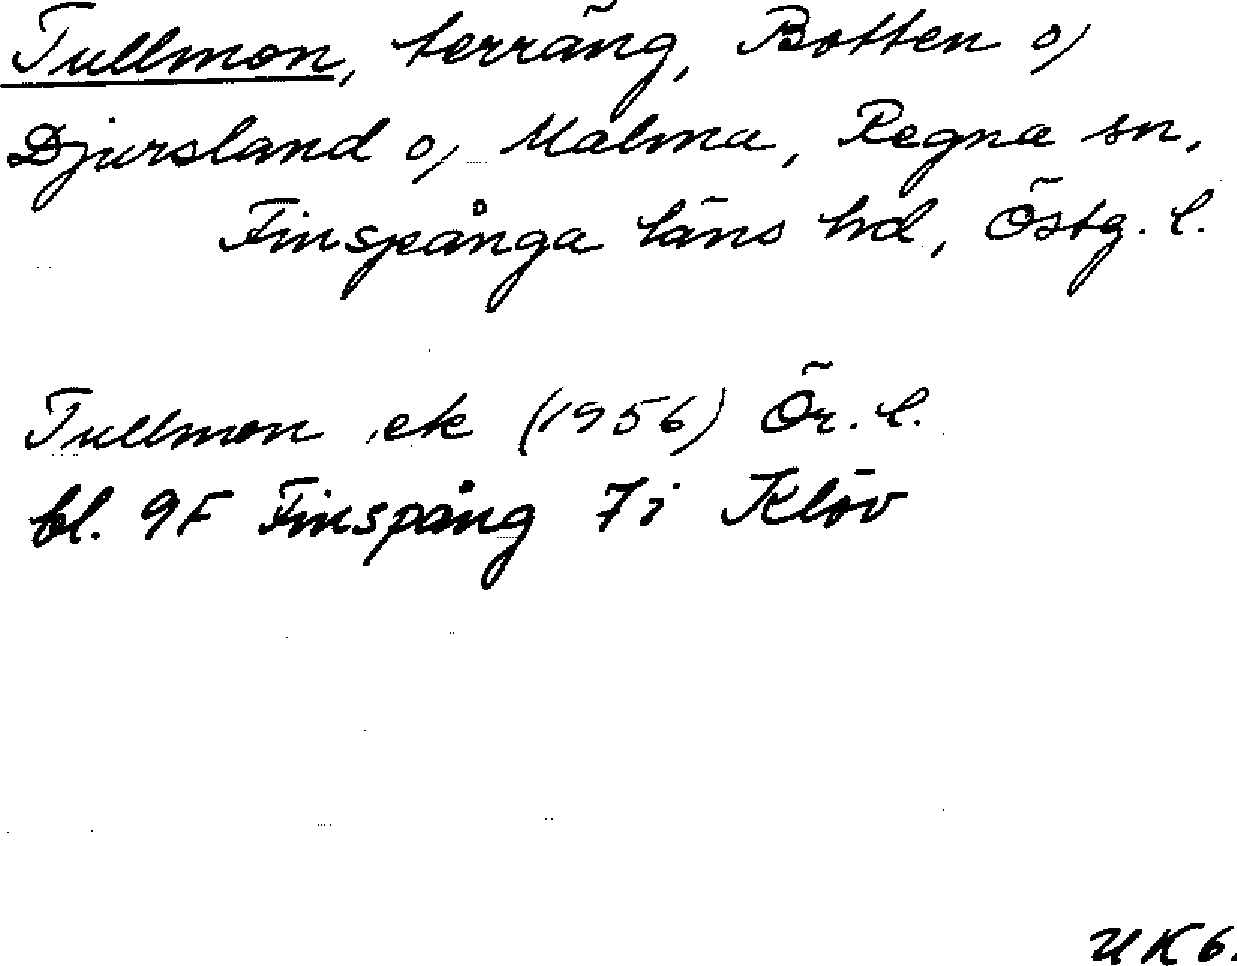 Tullmon, terräng, Botten o/
Djursland o/ Malma, Regna sn,
Finspånga läns hd, Östg. l.
Tullmon ek (1956) Ör. l.
bl. 9F Finspång 7i Klöv
UK6.